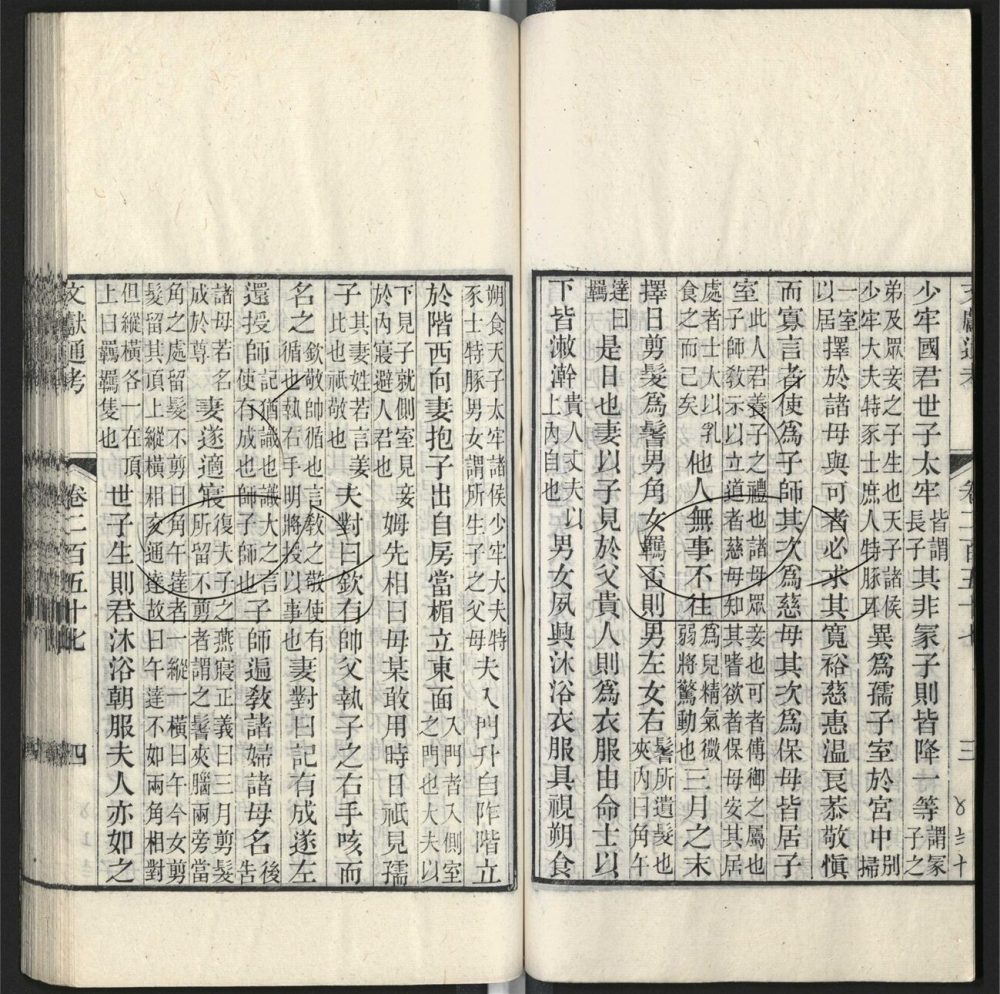 少牢國君世子太牢皆謂長子其非冢子則皆降一等謂冢子之
弟及眾妾之子生也天子諸侯少牢大夫特豕士庶人特豚耳異爲孺子室於宮中別掃
一室以居擇於諸母與可者必求其寬裕慈惠温良恭敬慎
而寡言者使爲子師其次爲慈母其次爲保母皆居子
室此人君養子之禮也諸母眾妾也可者傅御之屬也子師教示以立道者慈母知其嗜欲者保母安其居
處者士大以乳食之而已矣他人無事不往爲兒精氣微弱將驚動也三月之末
擇日剪髮爲鬌男角女羈否則男左女右鬌所遺髮也夾囟曰角午
達曰羈是日也妻以子見於父貴人則爲衣服由命士以
下皆漱澣貴人丈夫以上內自也男女夙興沐浴衣服具視朔食
朔食天子太牢諸侯少牢大夫特豕士特豚男女謂所生子之父母夫入門升自阼階立
於階西向妻抱子出自房當楣立東面入門者入側室之門也大夫以
下見子就側室見妾於內寢避人君也姆先相曰母某敢用時日祇見孺
子其妻姓若言姜此也祇敬也夫對曰欽有帥父執子之右手咳而
名之欽敬帥循也言教之敬使有循也執右手明將授以事也妻對曰記有成遂左
還授師記猶識也識大之言使有成也師子師也子師遍教諸婦諸母名後告
諸母若名成於尊妻遂適寢復夫之燕寢正義曰三月剪髮所留不剪者謂之鬌夾腦兩旁當
角之處留髮不剪曰角午達者一縱一橫曰午今女剪髮留其頂上縱橫相交通達故曰午達不如兩角相對
但縱橫各一在頂上曰羈羈隻也世子生則君沐浴朝服夫人亦如之
文獻通考 卷二百五十七 四